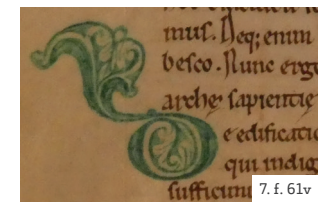 mus. Neq; enim
besco. Nunc ergo
archę sapientię
e edificatio
qui indig
7. f. 61v